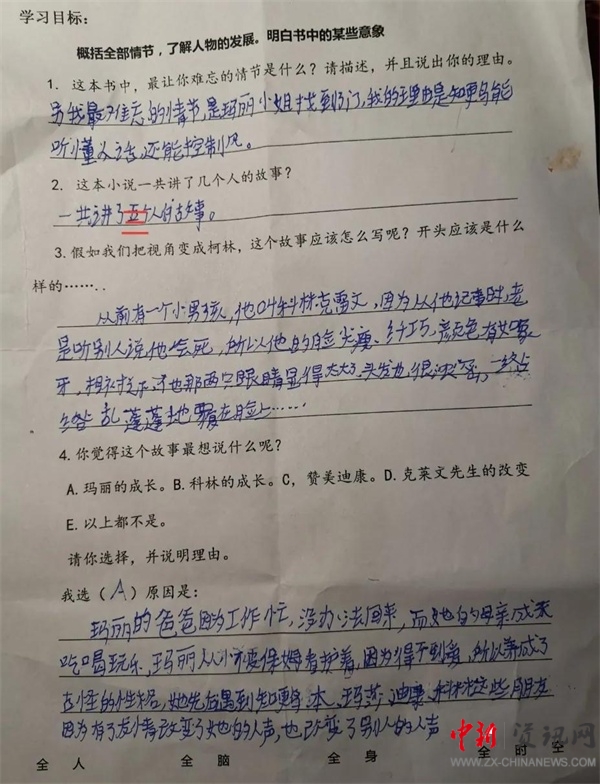 学习目标：
概括全部情节，了解人物的发展。明白书中的某些意象
1. 这本书中，最让你难忘的情节是什么？请描述，并且说出你的理由。
我最难忘的情节，是玛丽小姐找到门，我的理由是知更鸟能
听懂人话，还能控制风。
2. 这本小说一共讲了几个人的故事？
一共讲了五个人的故事。
3. 假如我们把视角变成柯林，这个故事应该怎么写呢？开头应该是什么
样的……..
从前有一个小男孩，他叫科林克雷文，因为从他记事时，老
是听别人说他会死，所以他的脸尖瘦、纤巧，颜色有如象
牙，相衬托下他那两只眼睛显得太大了，头发也很浓密，一络
络乱蓬蓬地覆在脸上……
4. 你觉得这个故事最想说什么呢？
A. 玛丽的成长。B. 科林的成长。C，赞美迪康。D. 克莱文先生的改变
E. 以上都不是。
请你选择，并说明理由。
我选（A）原因是：
玛丽的爸爸因为工作忙，没办法回来，而她的母亲成天
吃喝玩乐，玛丽从小被保姆看护着，因为得不到爱，所以养成了
古怪的性格，她先后遇到知更鸟、本、玛莎、迪康、科林这些朋友
因为有了友情改变了她的人声，也改变了别人的人声
全人 全脑 全身 全时空
中新资讯网
WWW.ZX-CHINANEWS.COM